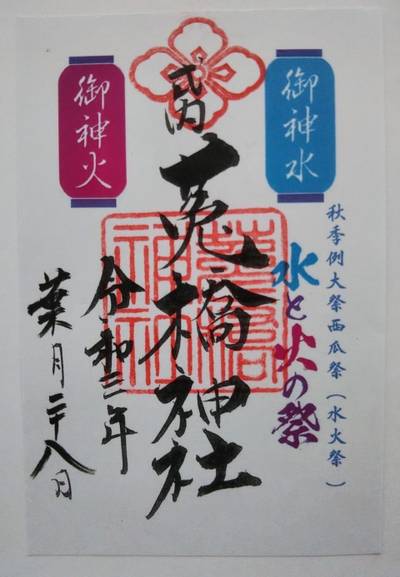 秋季例大祭西瓜祭（水火祭）
水と火の祭
御神水
式内
菟橋神社
令和三年
葉月二十八日
御神火